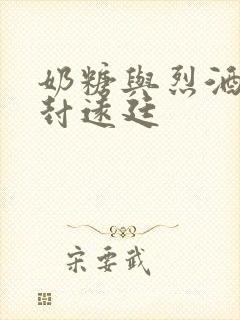 奶糖與烈酒
封遠廷
宋要武